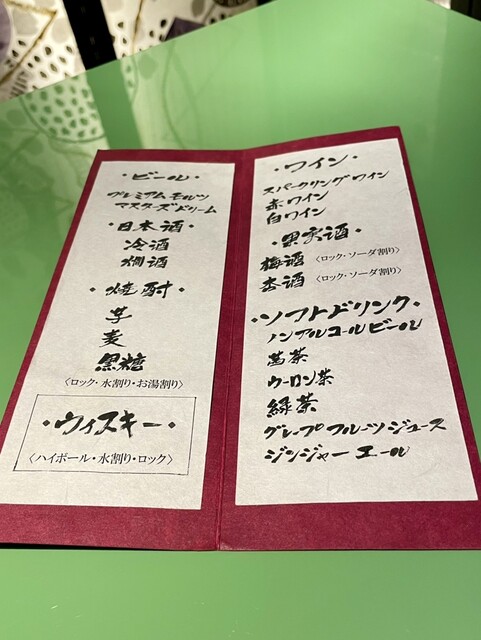 ・ビール・
プレミアムモルツ
マスターズドリーム
・日本酒・
冷酒
燗酒
・焼酎・
芋
麦
黒糖
〈ロック・水割り・お湯割り〉
・ウィスキー・
〈ハイボール・水割り・ロック〉
・ワイン・
スパークリングワイン
赤ワイン
白ワイン
・果実酒・
梅酒〈ロック・ソーダ割り〉
杏酒〈ロック・ソーダ割り〉
・ソフトドリンク・
ノンアルコールビール
ウーロン茶
緑茶
グレープフルーツジュース
ジンジャーエール